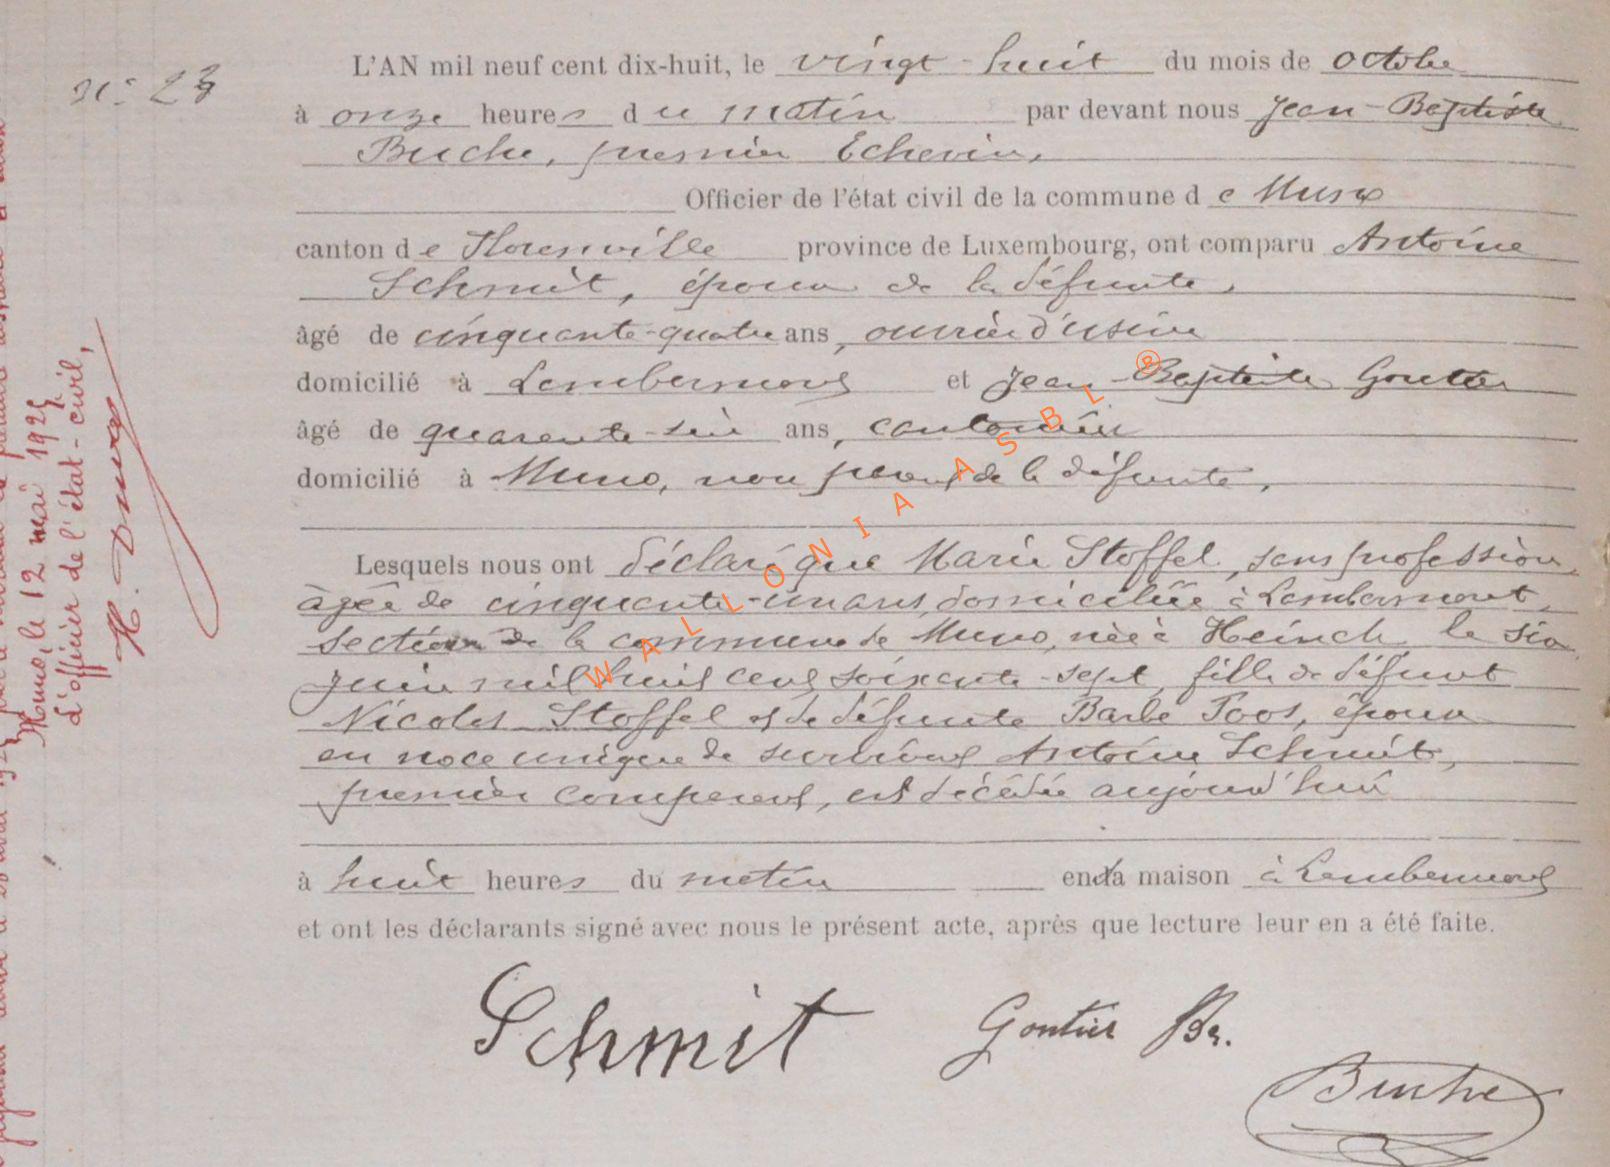 n° 23
L'AN mil neuf cent dix-huit, le vingt-huit du mois de octobre
à onze heures du matin par devant nous Jean-Baptiste
Buche, premier Echevin,
Officier de l'état civil de la commune de Muno
canton de Florenville province de Luxembourg, ont comparu Antoine
Schmit, époux de la défunte,
âgé de cinquante-quatre ans, ouvrier d'usine
domicilié à Lambermont et Jean-Baptiste Goutier
âgé de quarante-six ans, cantonnier
domicilié à Muno, non parent de la défunte,
Lesquels nous ont déclaré que Marie Stoffel, sans profession,
âgée de cinquante-un ans, domiciliée à Lambermont,
section de la commune de Muno, née à Heinch, le six
juin mil huit cent soixante-sept, fille de défunt
Nicolas Stoffel et de défunte Barbe Toos, épouse
en noce unique de survivant Antoine Schmit,
premier comparent, est décédée aujourd'hui
à huit heures du matin en la maison à Lambermont
et ont les déclarants signé avec nous le présent acte, après que lecture leur en a été faite.
Schmit Goutier Bte.
Buche
Muno, le 12 mai 1925
L'officier de l'état-civil,
WALLONIA ASBL ®